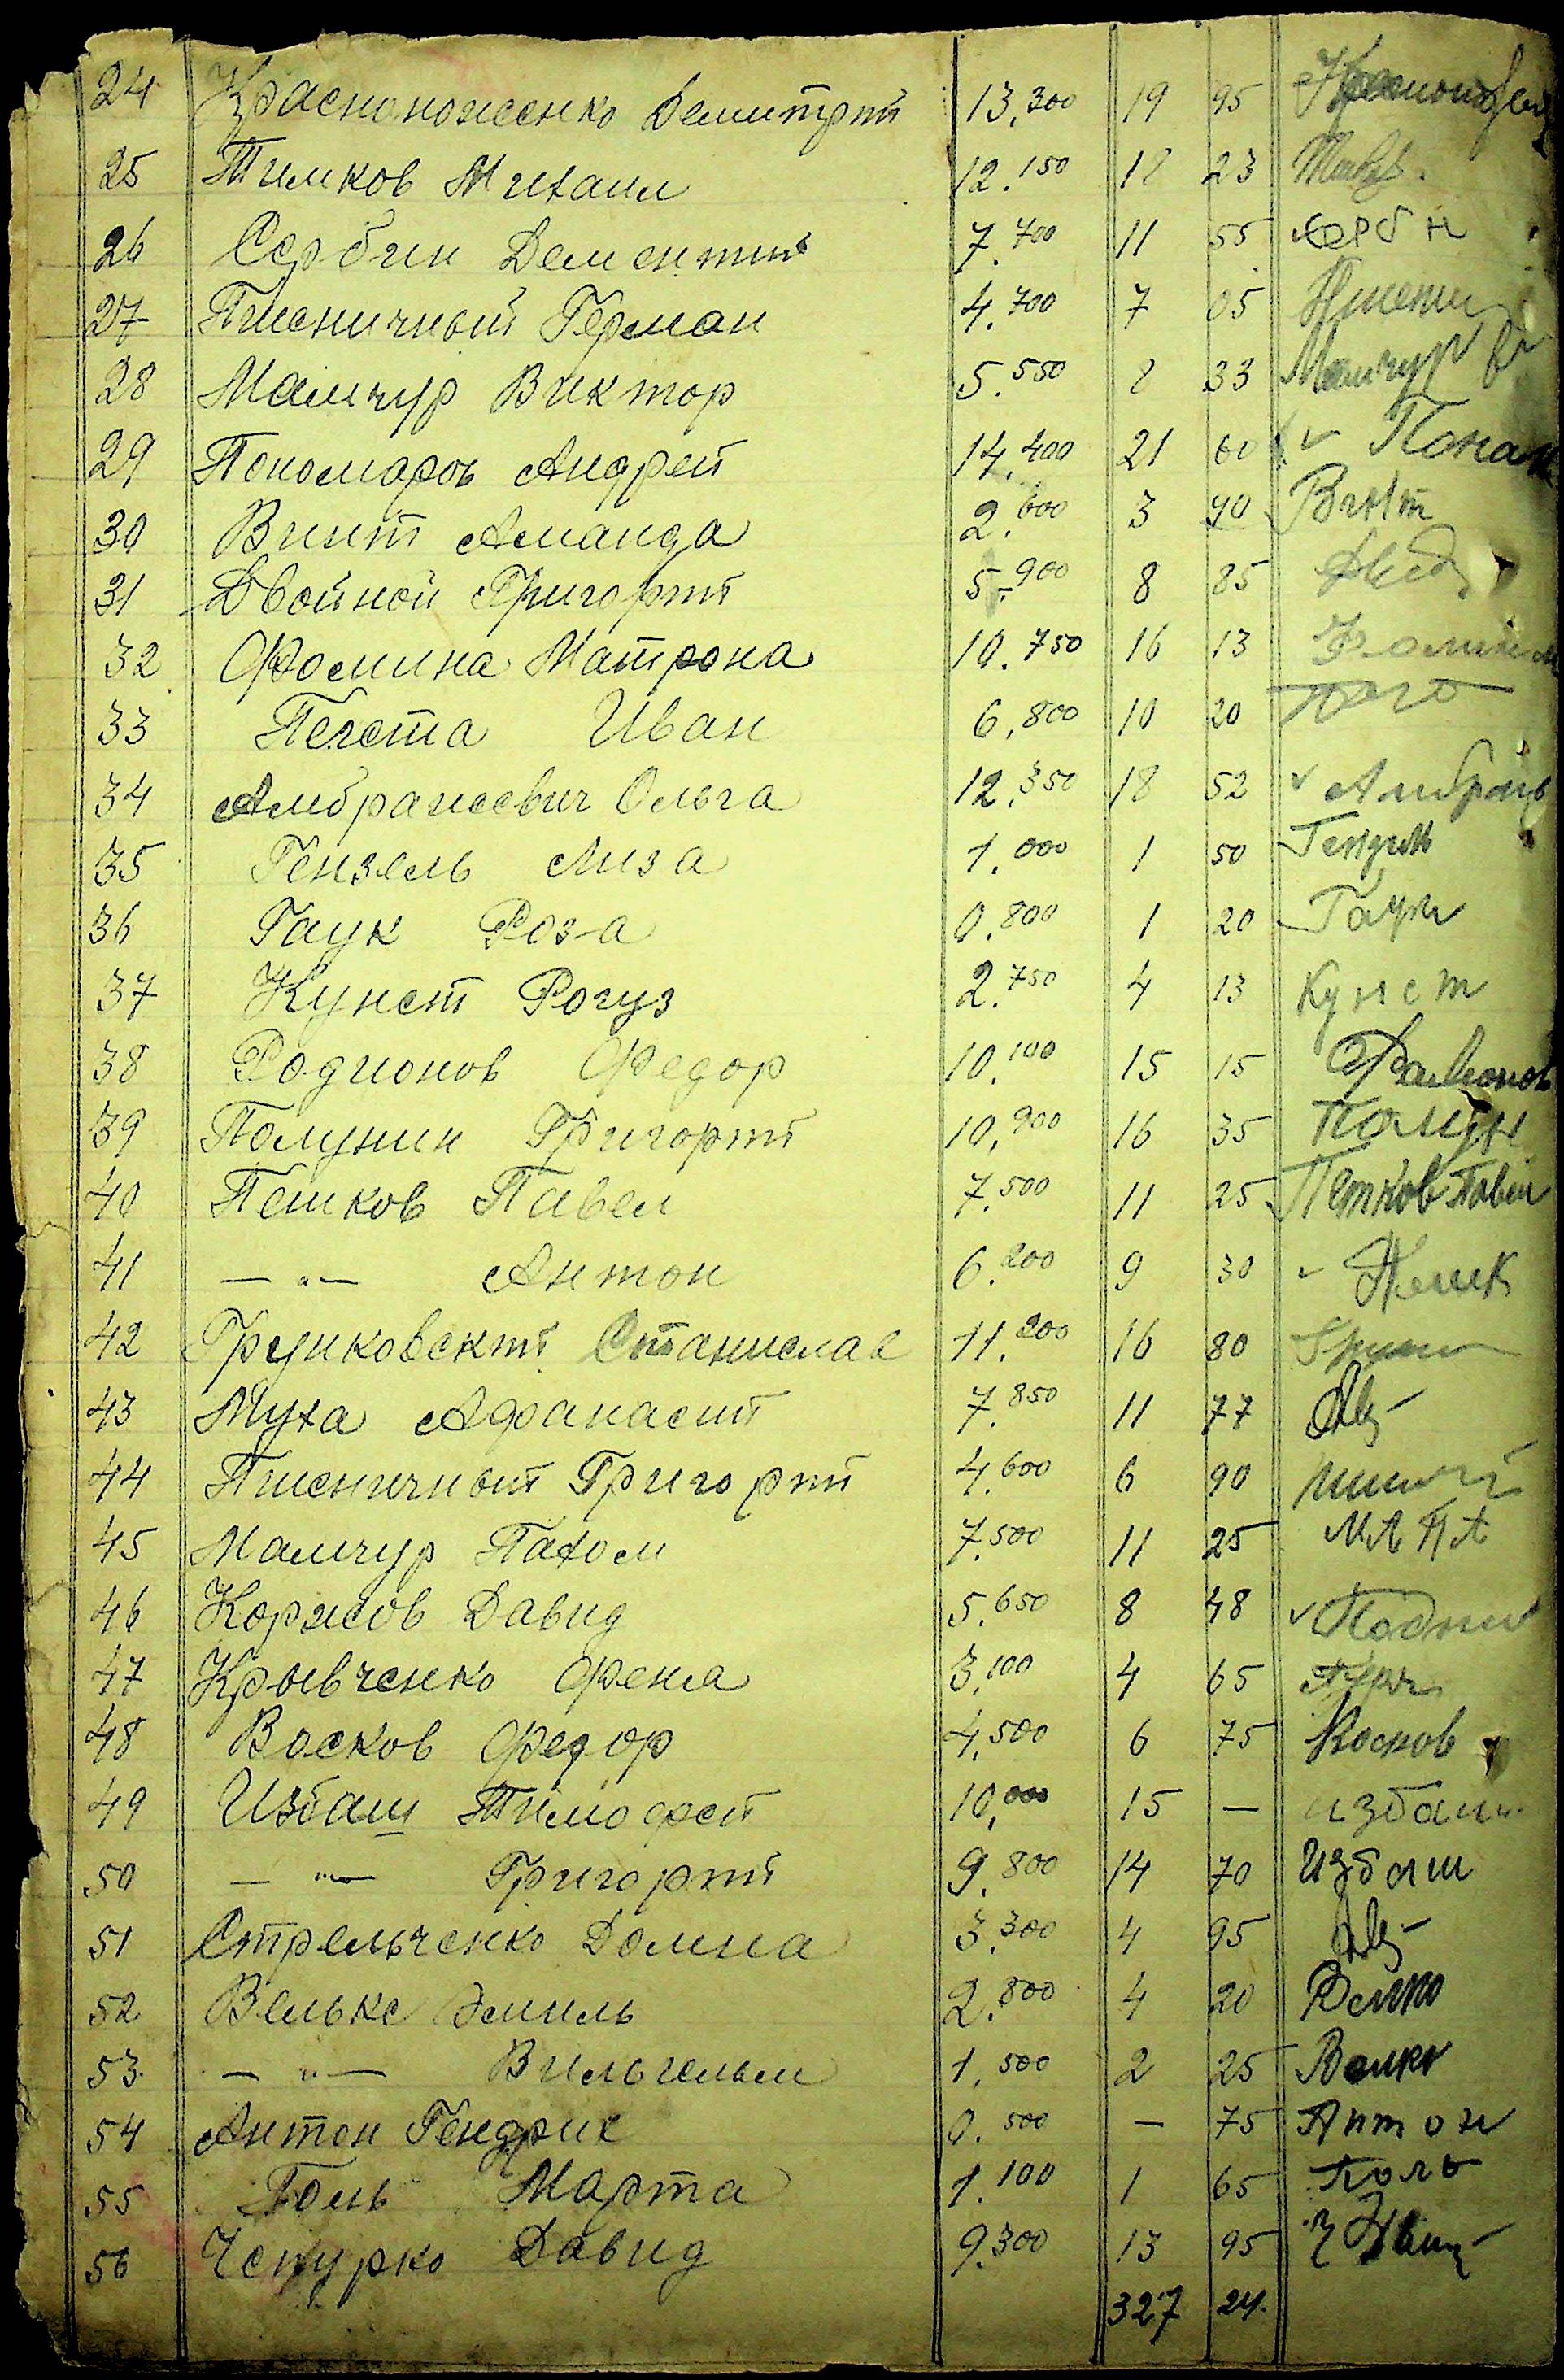 24 Красноноженко Демитрий 13.300 19 95
25 Тимков Михаил 12.150 18 23
26 Сербин Дементий 7.700 11 55 Серб н
27 Пшеничный Герман 4.700 7 05 Пшени
28 Мамчур Виктор 5.550 8 33 Мамчур В
29 Пономаров Андрей 14.400 21 60 Понам
30 Винт Аманда 2.600 3 90 Винт
31 Двойной Григорий 5.900 8 85
32 Фомина Матрона 10.750 16 13 Фомин
33 Пегета Иван 6.800 10 20
34 Амбражевич Ольга 12.350 18 52 Амбраж
35 Гензель Лиза 1.000 1 50
36 Гаук Роза 0.800 1 20 Гаук
37 Кунст Рогуз 2.750 4 13 Кунст
38 Родионов Федор 10.100 15 15
39 Полунин Григорий 10.900 16 35 Полун
40 Пешков Павел 7.500 11 25 Пешков Павел
41 — " — Антон 6.200 9 30 Пешк
42 Грунковский Станислав 11.200 16 80
43 Муха Афанасий 7.850 11 77
44 Пшеничный Григорий 4.600 6 90
45 Мамчур Пахом 7.500 11 25 МА ПА
46 Коржов Давид 5.650 8 48
47 Крывченко Фекла 3.100 4 65
48 Восков Федор 4.500 6 75 Восков
49 Избаш Тимофей 10.000 15 — избаш
50 — " — Григорий 9.800 14 70 Избаш
51 Стрельченко Домна 3.300 4 95
52 Вельке Эмиль 2.800 4 20
53 — " — Вильгельм 1.500 2 25 Велке
54 Антон Гендрик 0.500 — 75 Антон
55 Голь Марта 1.100 1 65 Голь
56 Чепурко Давид 9.300 13 95
327 24.